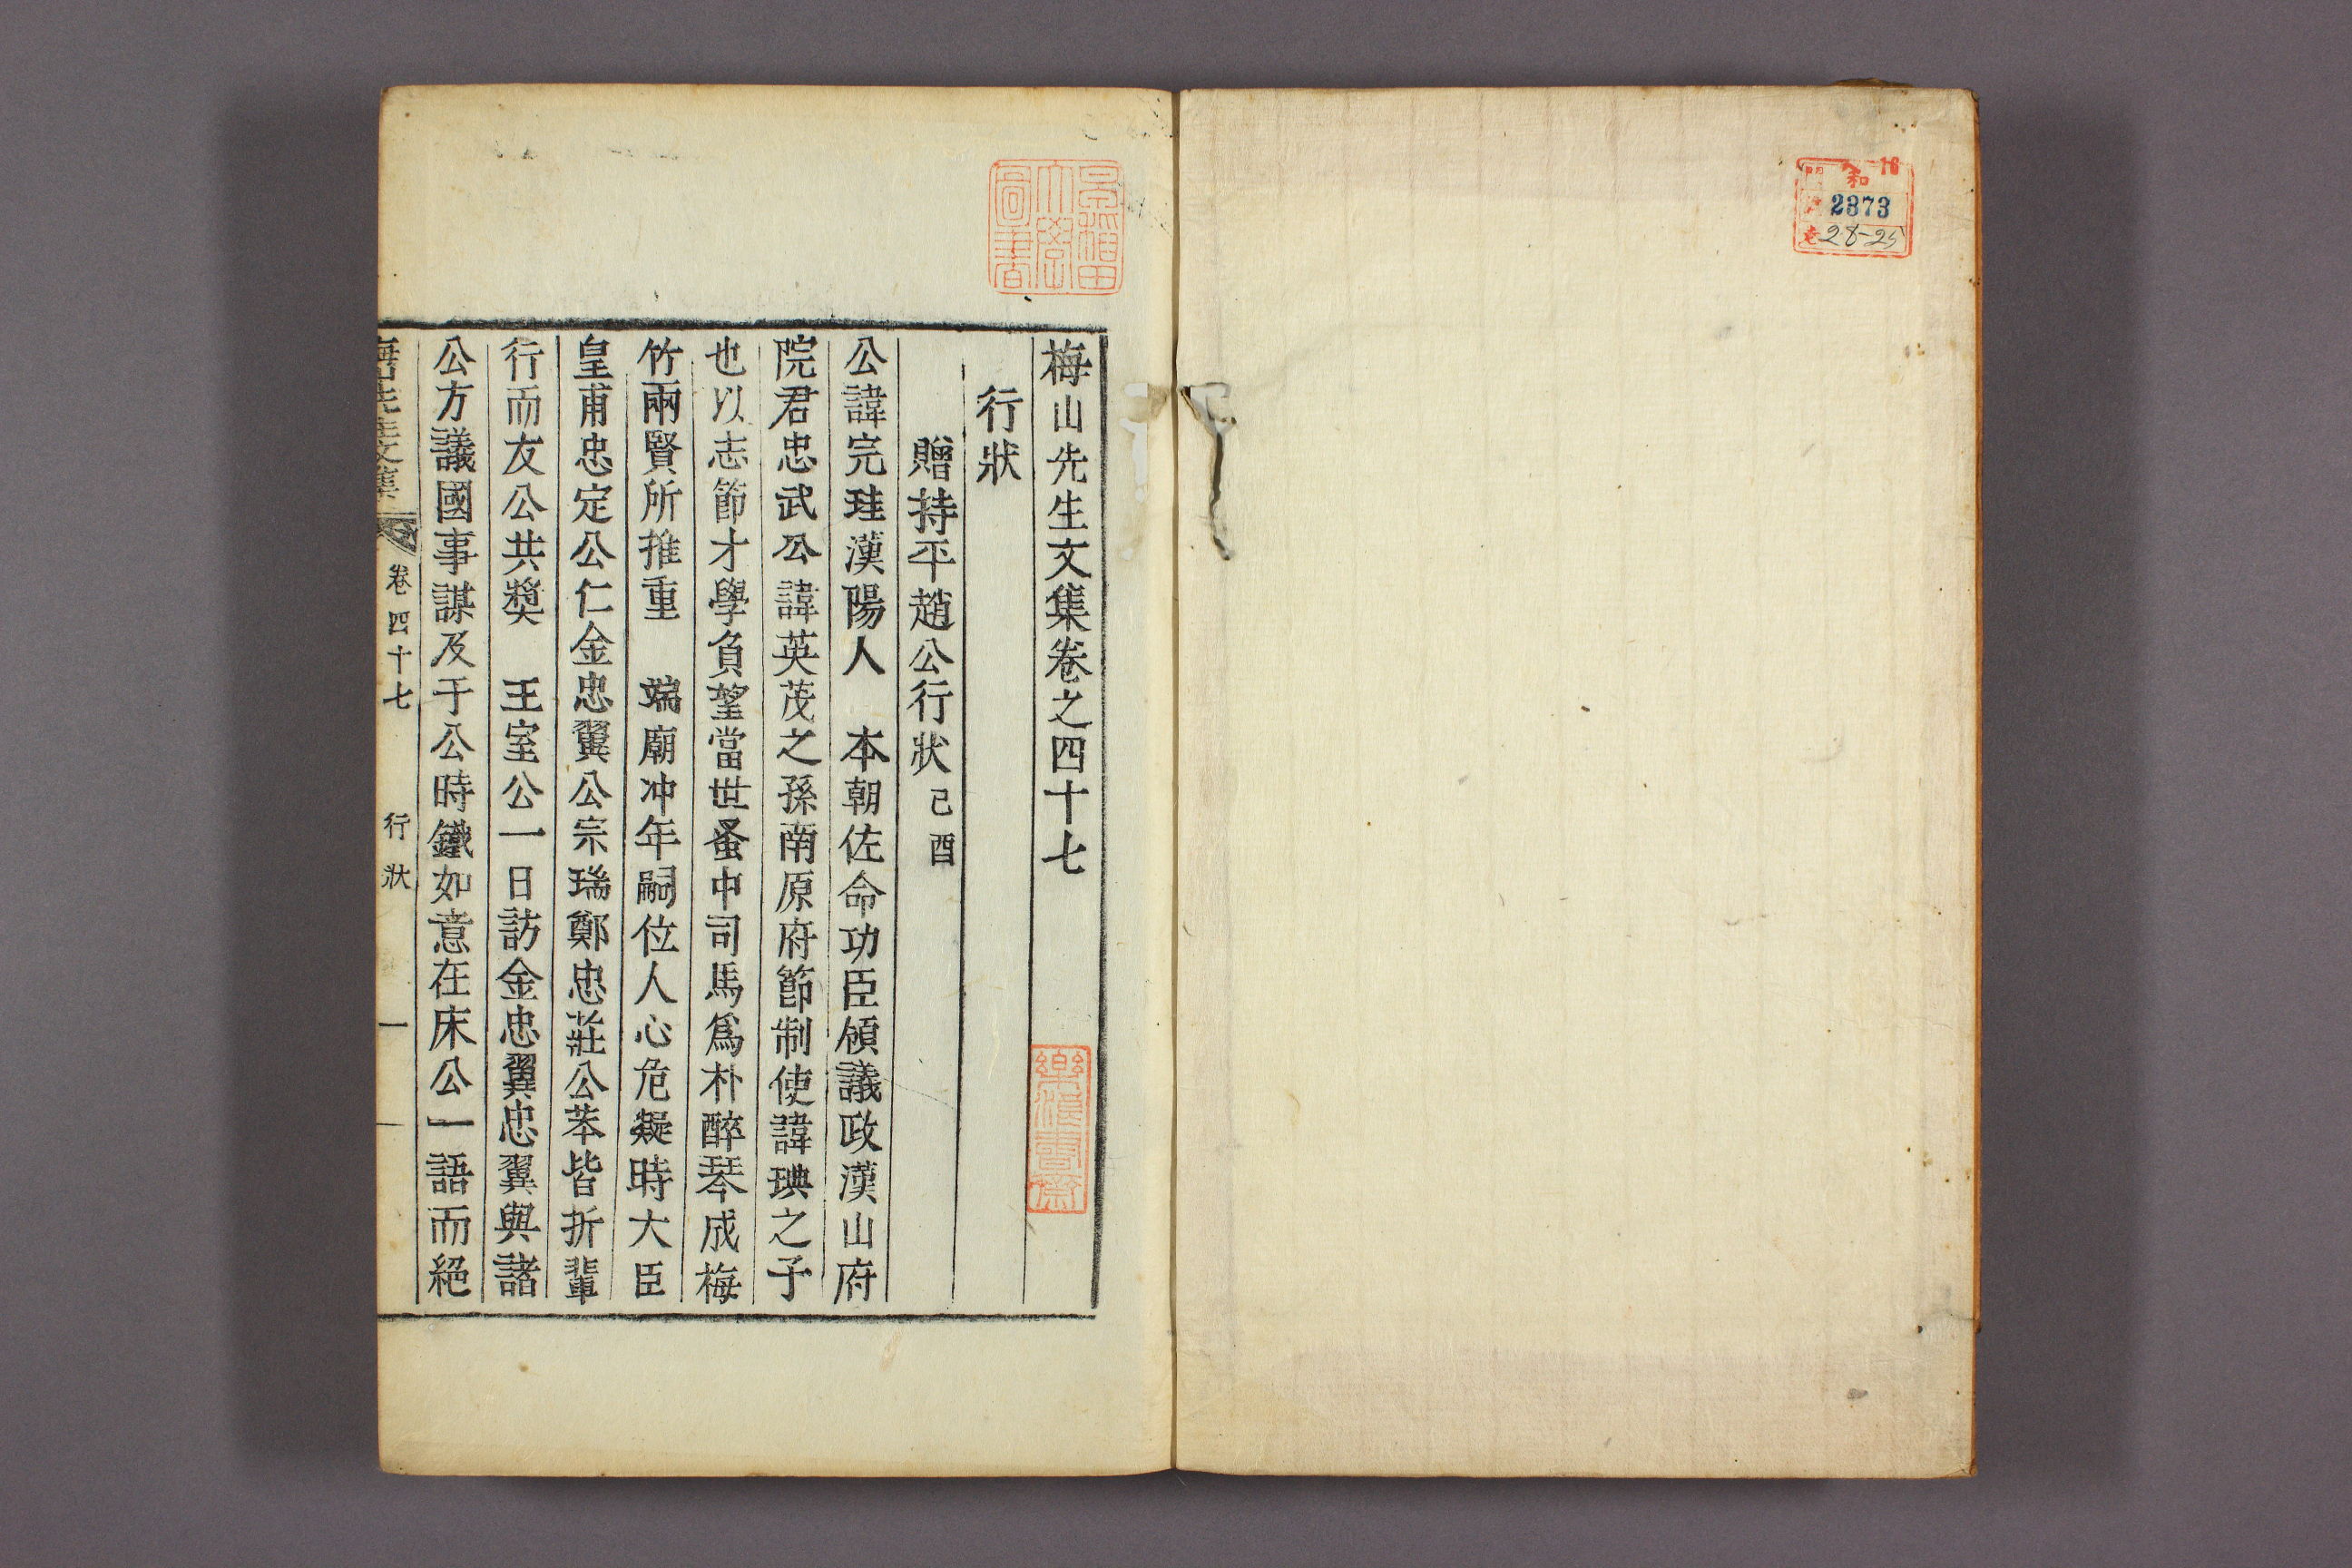 梅山先生文集卷之四十七
行狀
贈持平趙公行狀 己酉
公諱完珪漢陽人 本朝佐命功臣領議政漢山府
院君忠武公諱英茂之孫南原府節制使諱琠之子
也以志節才學負望當世蚤中司馬爲朴醉琴成梅
竹兩賢所推重 端廟冲年嗣位人心危疑時大臣
皇甫忠定公仁金忠翼公宗瑞鄭忠莊公苯皆折輩
行而友公共奬 王室公一日訪金忠翼忠翼與諸
公方議國事謀及于公時鐵如意在床公一語而絕
梅山先生文集 卷四十七 行狀 一
早稻田大學圖書
樂浪書齋
和 16
門
號 2873
卷 28-25